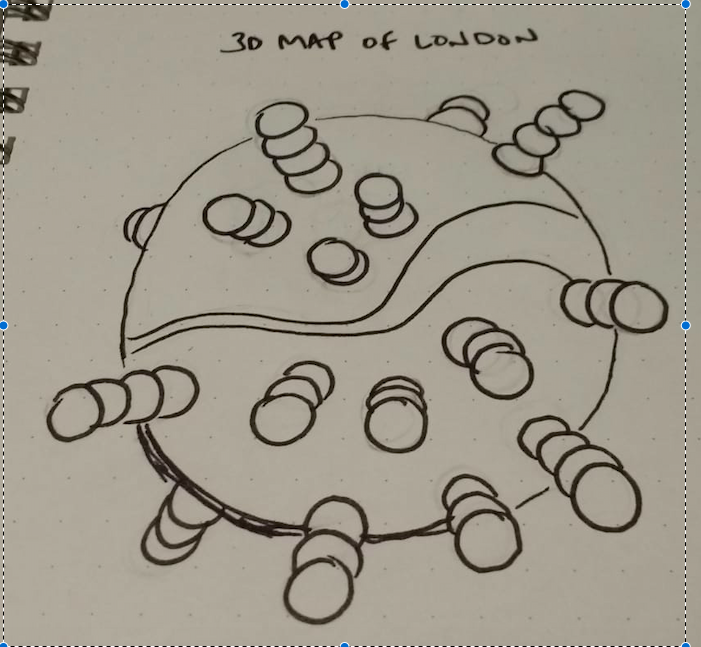 3D MAP OF LONDON